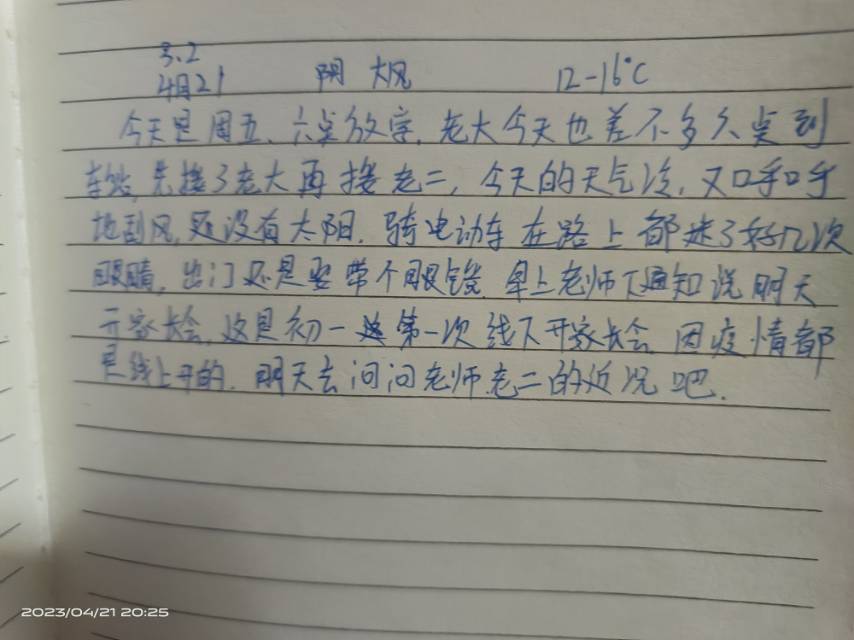 3.2
4月21 阴 大风 12-16°C
今天是周五、六点放学,老大今天也差不多久点到
车站,先接了老大再接老二,今天的天气冷,又呼呼
地刮风,还没有太阳.骑电动车在路上都迷了好几次
眼睛,出门还是要带个眼镜.早上老师下通知说明天
开家长会,这是初一第一次线下开家长会 因疫情都
是线上开的.明天去问问老师老二的近况吧.
2023/04/21 20:25